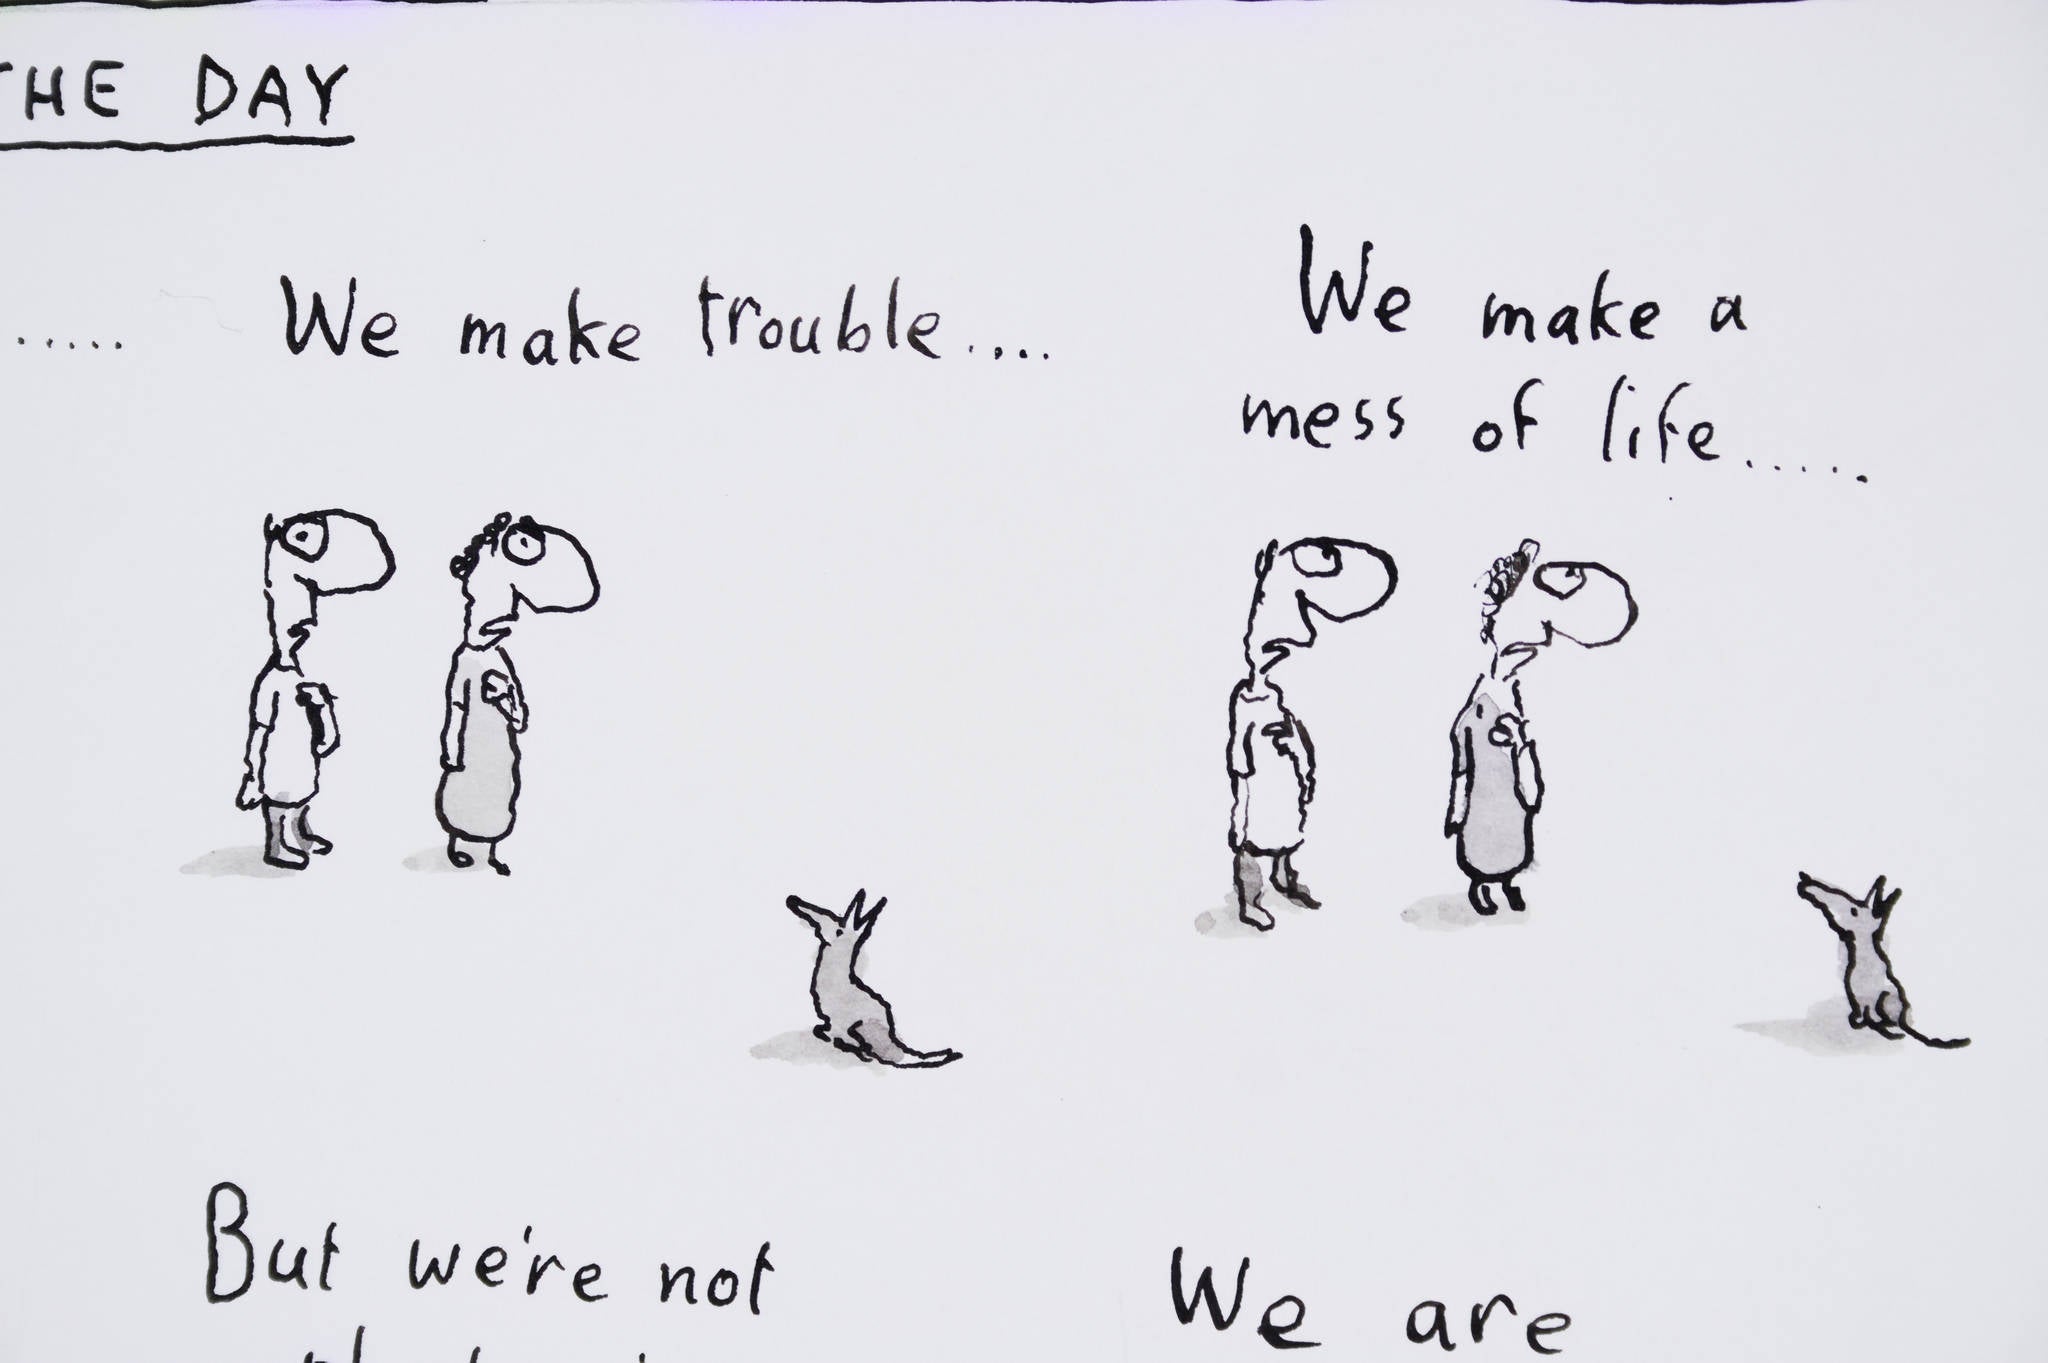 THE DAY
..... We make trouble....
We make a
mess of life.....
But we're not
We are